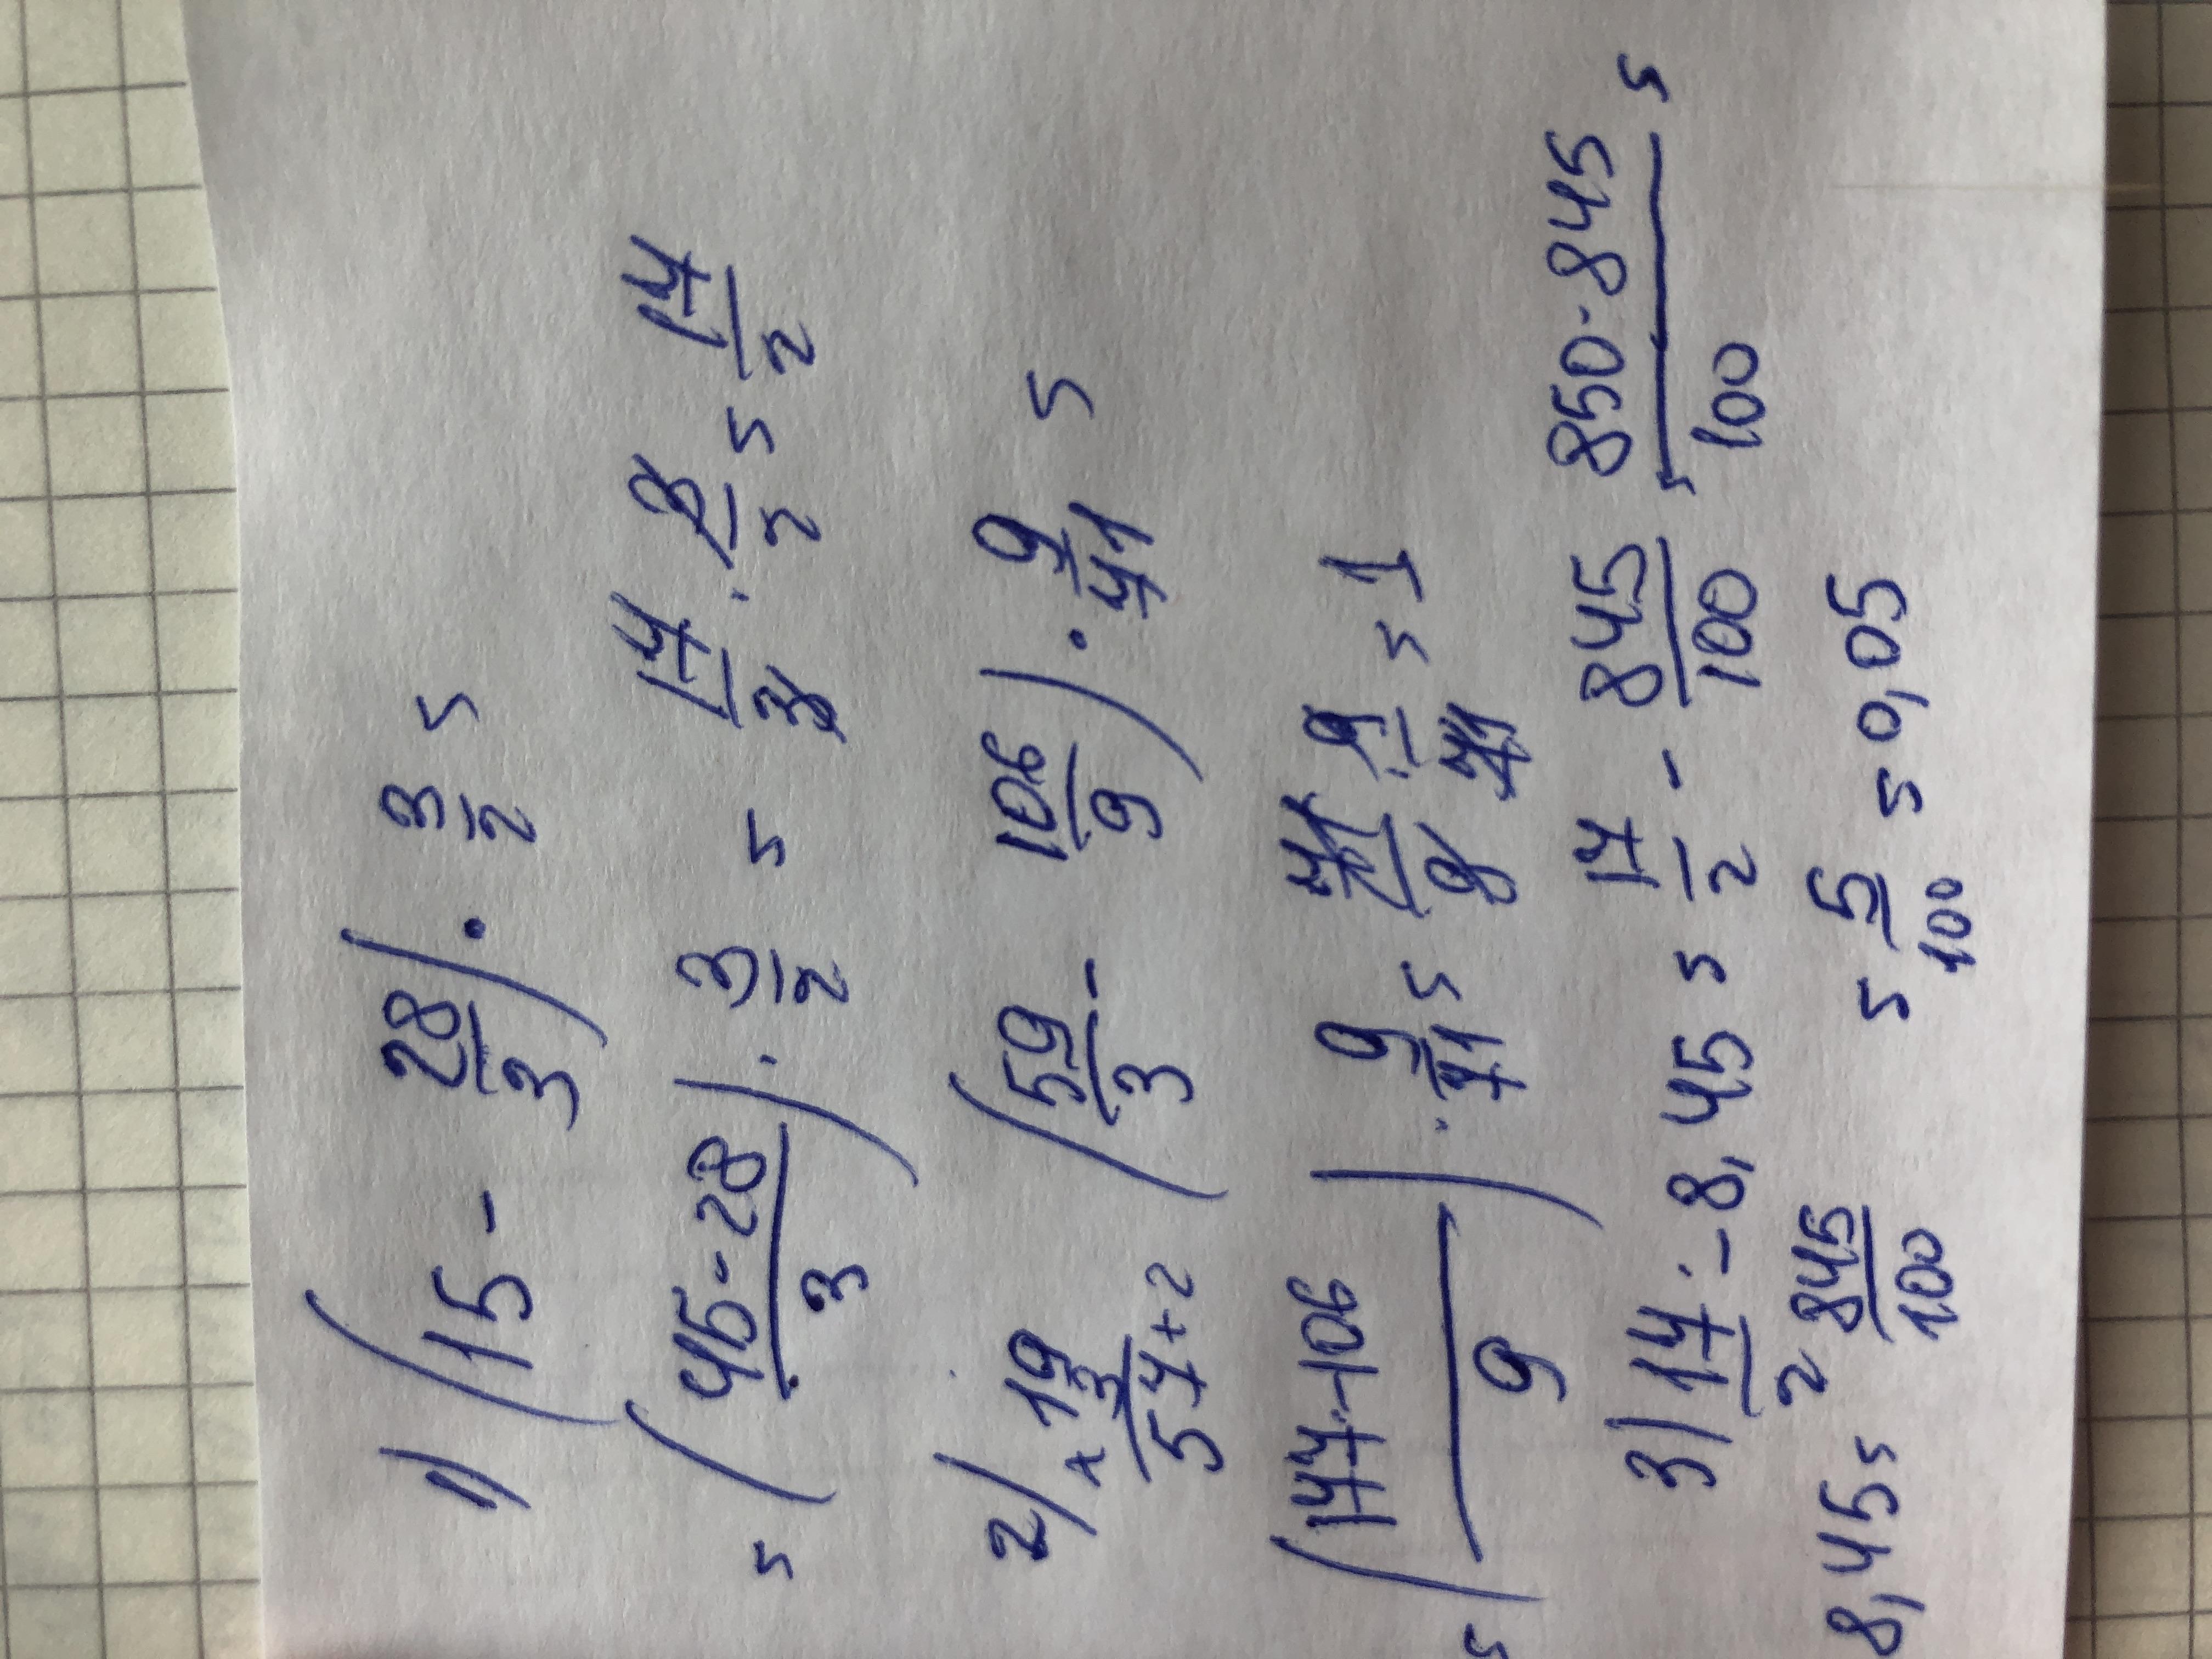 1) (15 - 28/3) · 3/2 =
= (45-28/3) · 3/2 = 17/3 · 3/2 = 17/2
2) (59/3 - 106/9) · 9/71 =
× 19 3
57+2
= (177-106/9) · 9/71 = 71/9 · 9/71 = 1
3) 17/2 - 8,45 = 17/2 - 845/100 = 850-845/100 =
8,45 = 845/100 = 5/100 = 0,05